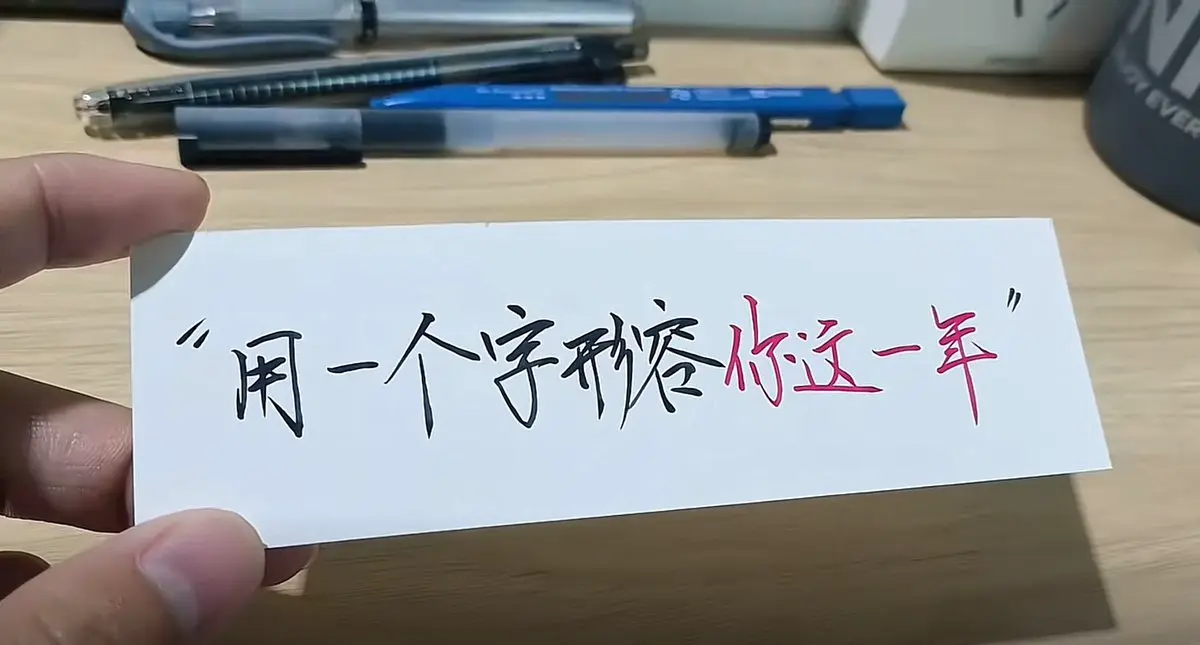 “用一个字形容你这一年”